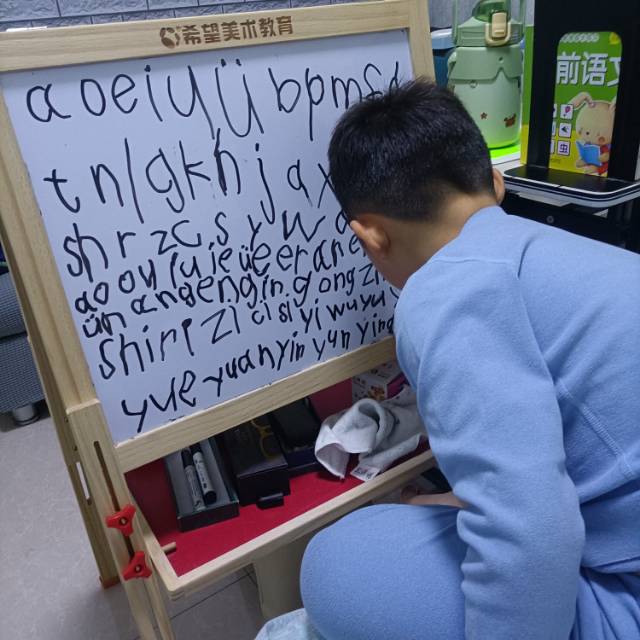 希望美术教育
a o e i u ü b p m f d
t n l g k h j q x
sh r z c s y w
ao ou iu ie üe er an e
ün ang eng ing ong z
shi r i zi ci si yi wu yu
yue yuan yin yun ying
前语文